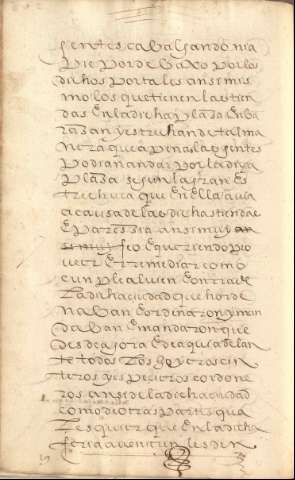 gentes cabalgando ni a
pie por debaxo por los
dichos portales ansimis
mo los que tienen las tien
das en la dicha plaça enba
raban y estrechan de tal ma
nera que a penas las gentes
podian andar por la dicha
plaça segun la gran es
trechura que en ella avia
a causa de las dichas tiendas
e paresçia ansimismo
feo e queriendo pro
veer e rremediar como
cunple al vien comun de
la dicha ciudad que horde
naban e ordenaron y man
daban e mandaron que
desde agora e de aqui adelan
te todos los joyeros cin
teros y espeçieros cordone
ros ansi de la dicha ciudad
como de otras partes qua
lesquier que en la dicha
feria avenir u